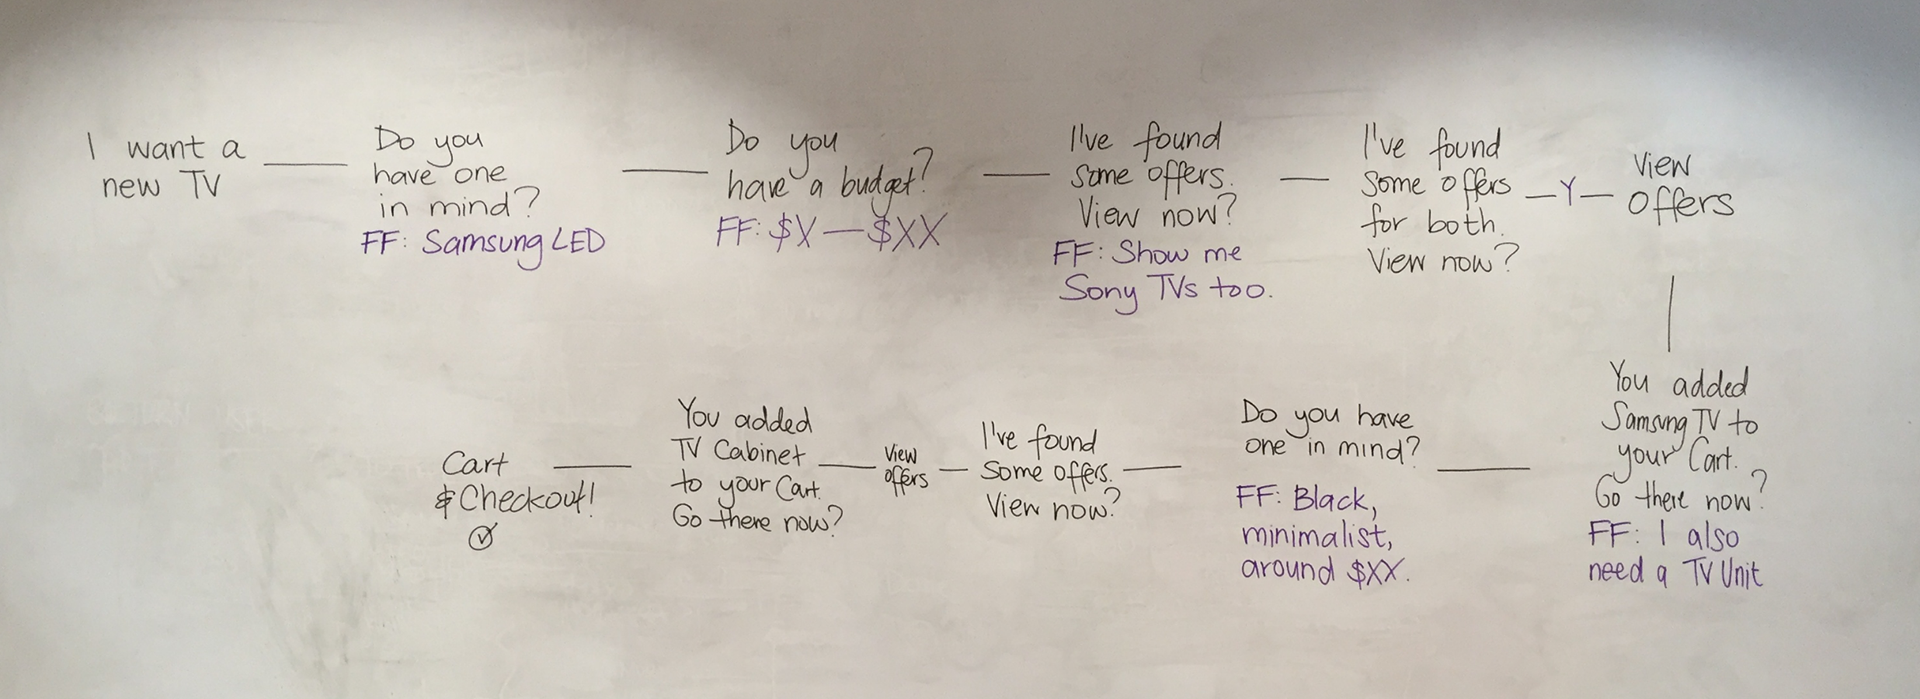 I want a
new TV
Do you
have one
in mind?
FF: Samsung LED
Do you
have a budget?
FF: $X — $XX
I've found
some offers.
View now?
FF: Show me
Sony TVs too.
I've found
some offers
for both.
View now?
Y
View
offers
You added
Samsung TV to
your Cart.
Go there now?
FF: I also
need a TV Unit
Do you have
one in mind?
FF: Black,
minimalist,
around $XX.
I've found
some offers.
View now?
View
offers
You added
TV Cabinet
to your Cart.
Go there now?
Cart
& Checkout!